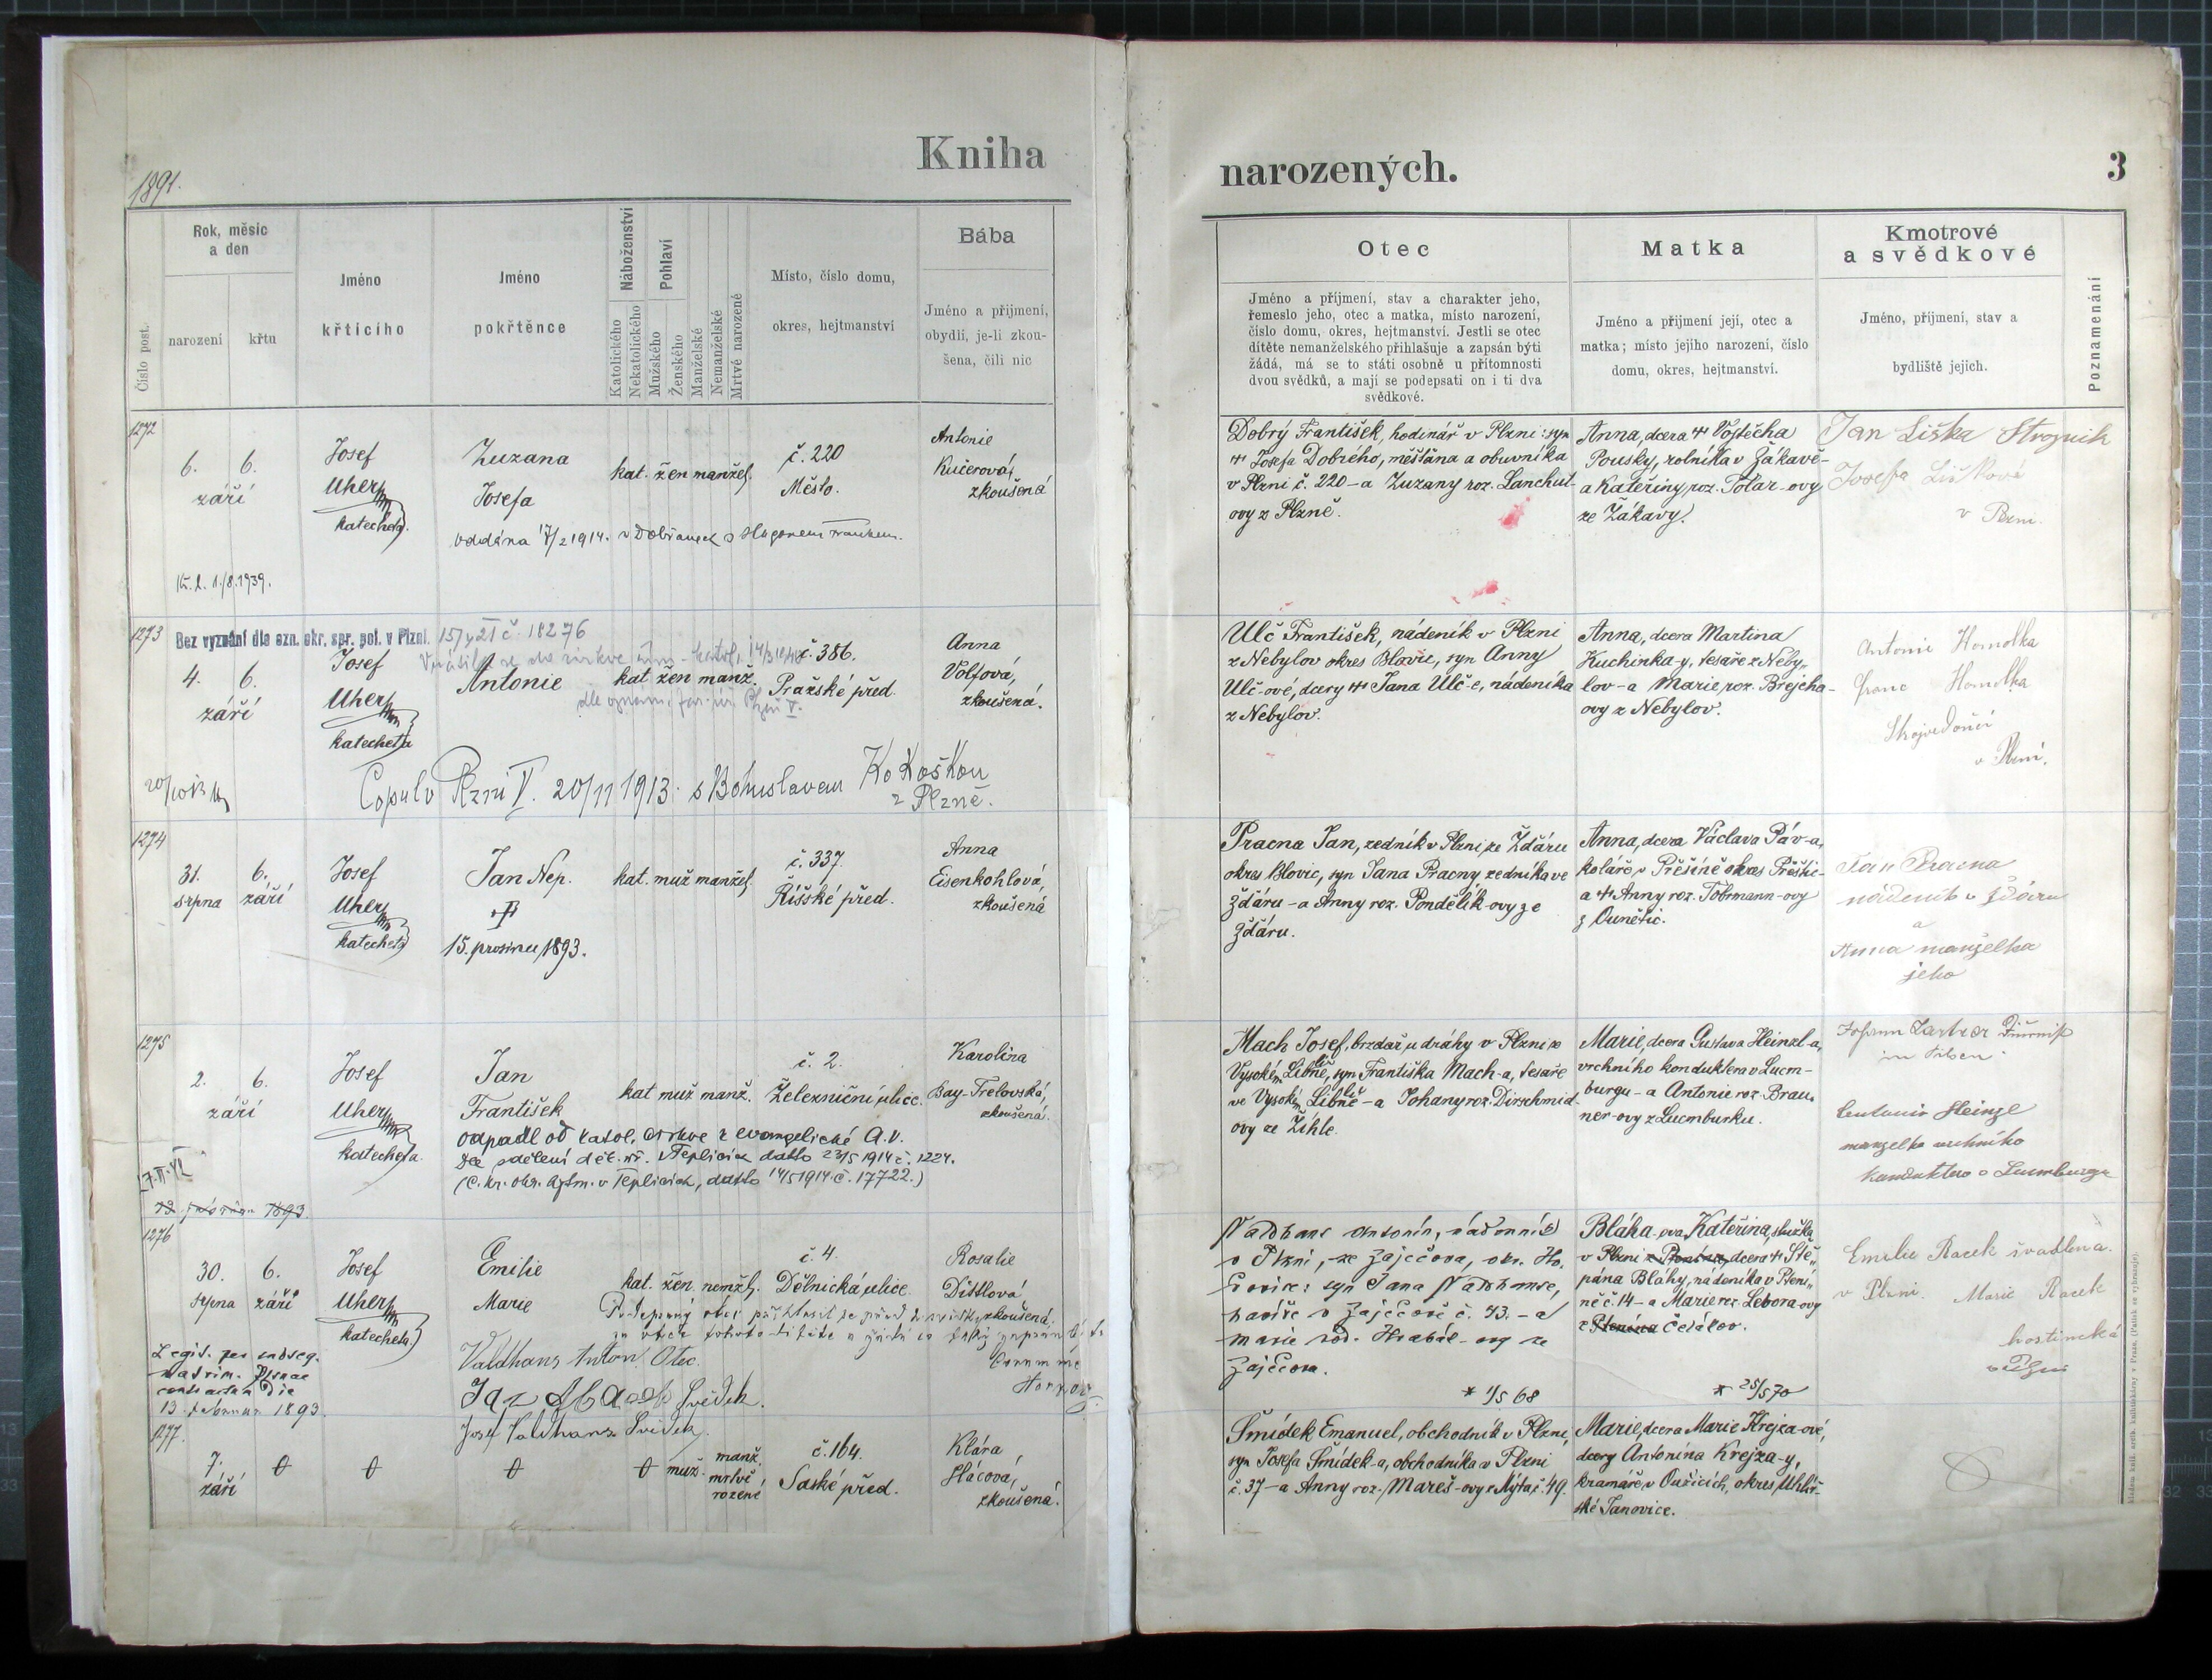 Kniha
1891.
Číslo post.
Rok, měsíc
a den
narození
křtu
Jméno
křticího
Jméno
pokřtěnce
Náboženství
Katolického
Nekatolického
Pohlaví
Mužského
Ženského
Manželské
Nemanželské
Mrtvé narozené
Místo, číslo domu,
okres, hejtmanství
Bába
Jméno a příjmení,
obydlí, je-li zkou-
šena, čili nic
1272
6. 6.
září
Josef
Uher
katecheta.
Zuzana
Josefa
kat. žen manžel.
č. 220
Město.
Antonie
Kučerová,
zkoušená
oddána 17/2 1914. v Dobřanech s Hugonem
1./8.1939.
1273
Bez vyznání dle ozn. okr. spr. pol. v Plzni. 15/4 21 č. 18276
4. 6.
září
Josef
Uher
katecheta
Antonie
kat žen manž.
č. 386.
Pražské před.
Anna
Volfová,
zkoušená.
Copul v Plzni V. 20/11 1913. s Bohuslavem Kokoškou
z Plzně.
1274
31. 6.
srpna září
Josef
Uher
katecheta
Jan Nep.
15. prosince 1893.
kat. muž manžel.
č. 337.
Říšské před.
Anna
Eisenkohlová,
zkoušená
1275
2. 6.
září
Josef
Uher
katecheta.
Jan
František
kat muž manž.
č. 2.
Železniční ulice.
Karolina
Bay-Trelovská,
zkoušená.
odpadl od katol. církve k evangelické A.V.
dle sdělení děk. úř. v Teplicích datto 23/5 1914 č. 1224.
(C. kr. okr. hejtm. v Teplicích, datto 14/5 1914 č. 17722.)
1893.
1276
30. 6.
srpna září
Josef
Uher
katecheta.
Emilie
Marie
kat. žen. nemžl.
č. 4.
Dělnická ulice.
Rosalie
Distlová
zkoušená.
Valdhans Anton. Otec.
Svědek.
Josef Valdhans Svědek.
Legit. per subseq.
matrim. Plsnae
contractum die
13. februar 1893.
1277.
7.
září
muž.
manž.
mrtvě
rozené
č. 164.
Saské před.
Klára
Hácová,
zkoušená.
narozených.
3
Otec
Jméno a příjmení, stav a charakter jeho,
řemeslo jeho, otec a matka, místo narození,
číslo domu, okres, hejtmanství. Jestli se otec
dítěte nemanželského přihlašuje a zapsán býti
žádá, má se to státi osobně u přítomnosti
dvou svědků, a mají se podepsati on i ti dva
svědkové.
Matka
Jméno a příjmení její, otec a
matka; místo jejího narození, číslo
domu, okres, hejtmanství.
Kmotrové
a svědkové
Jméno, příjmení, stav a
bydliště jejich.
Poznamenání
Dobrý František, hodinář v Plzni: syn
Josefa Dobrého, měšťána a obuvníka
v Plzni č. 220 - a Zuzany roz. Lanchut-
ovy z Plzně.
Anna, dcera Vojtěcha
Pousky, rolníka v Žákavě -
a Kateřiny roz. Tolar-ovy
ze Žákavy.
Jan Liška Strojník
Josefa Lišková
v Plzni.
Ulč František, nádeník v Plzni
z Nebylov okres Blovic, syn Anny
Ulč-ové, dcery Jana Ulč-e, nádeníka
z Nebylov.
Anna, dcera Martina
Kuchinka-y, tesaře z Neby„
lov - a Marie roz. Brejcha-
ovy z Nebylov.
Antonie Homolka
Franc Homolka
Strojvedoucí
v Plzni.
Pracna Jan, zedník v Plzni ze Ždáru
okres Blovic, syn Jana Pracny zedníka ve
Ždáru - a Anny roz. Pondělík-ovy ze
Ždáru.
Anna, dcera Václava Páv-a,
koláře v Přešíně okres Přeštic -
a Anny roz. Tobrmann-ovy
z Ounětic.
Jan Pracna
nádeník v Ždáru
a
Anna manželka
jeho
Mach Josef, brzdař u dráhy v Plzni z
Vysokém Libně, syn Františka Mach-a, tesaře
ve Vysokém Libně - a Johany roz. Dirschmid-
ovy ze Žihle.
Marie, dcera Gustava Heinzl-a,
vrchního konduktera v Lucm-
burgu - a Antonie roz. Brau„
ner-ovy z Lucmburku.
in Pilsen.
Antonie Heinzl
manželka vrchního
konduktera v Lucmburgu
Valdhans Antonín, nádenník
v Plzni, ze Zaječova, okr. Ho-
řovice: syn Jana Valdhanse,
havíře v Zaječově č. 43. - a
Marie rod. Hrabák-ovy ze
Zaječova.
* 1/5 68
Bláha-ova Kateřina, služka
v Plzni z Plenína, dcera Ště„
pána Bláhy, nádeníka v Pleni„
ně č. 14 - a Marie roz. Lebora-ovy
z Plenína Čečákov.
* 25/5 70
Emilie Racek švadlena
v Plzni. Marie Racek
hostinská
v Plzni
Šmídek Emanuel, obchodník v Plzni,
syn Josefa Šmídek-a, obchodníka v Plzni
č. 37 - a Anny roz. Mareš-ovy z Mýta č. 49.
Marie, dcera Marie Krejza-ové,
dcery Antonína Krejza-y,
kramáře v Oušicích, okres Uhlíř-
ské Janovice.